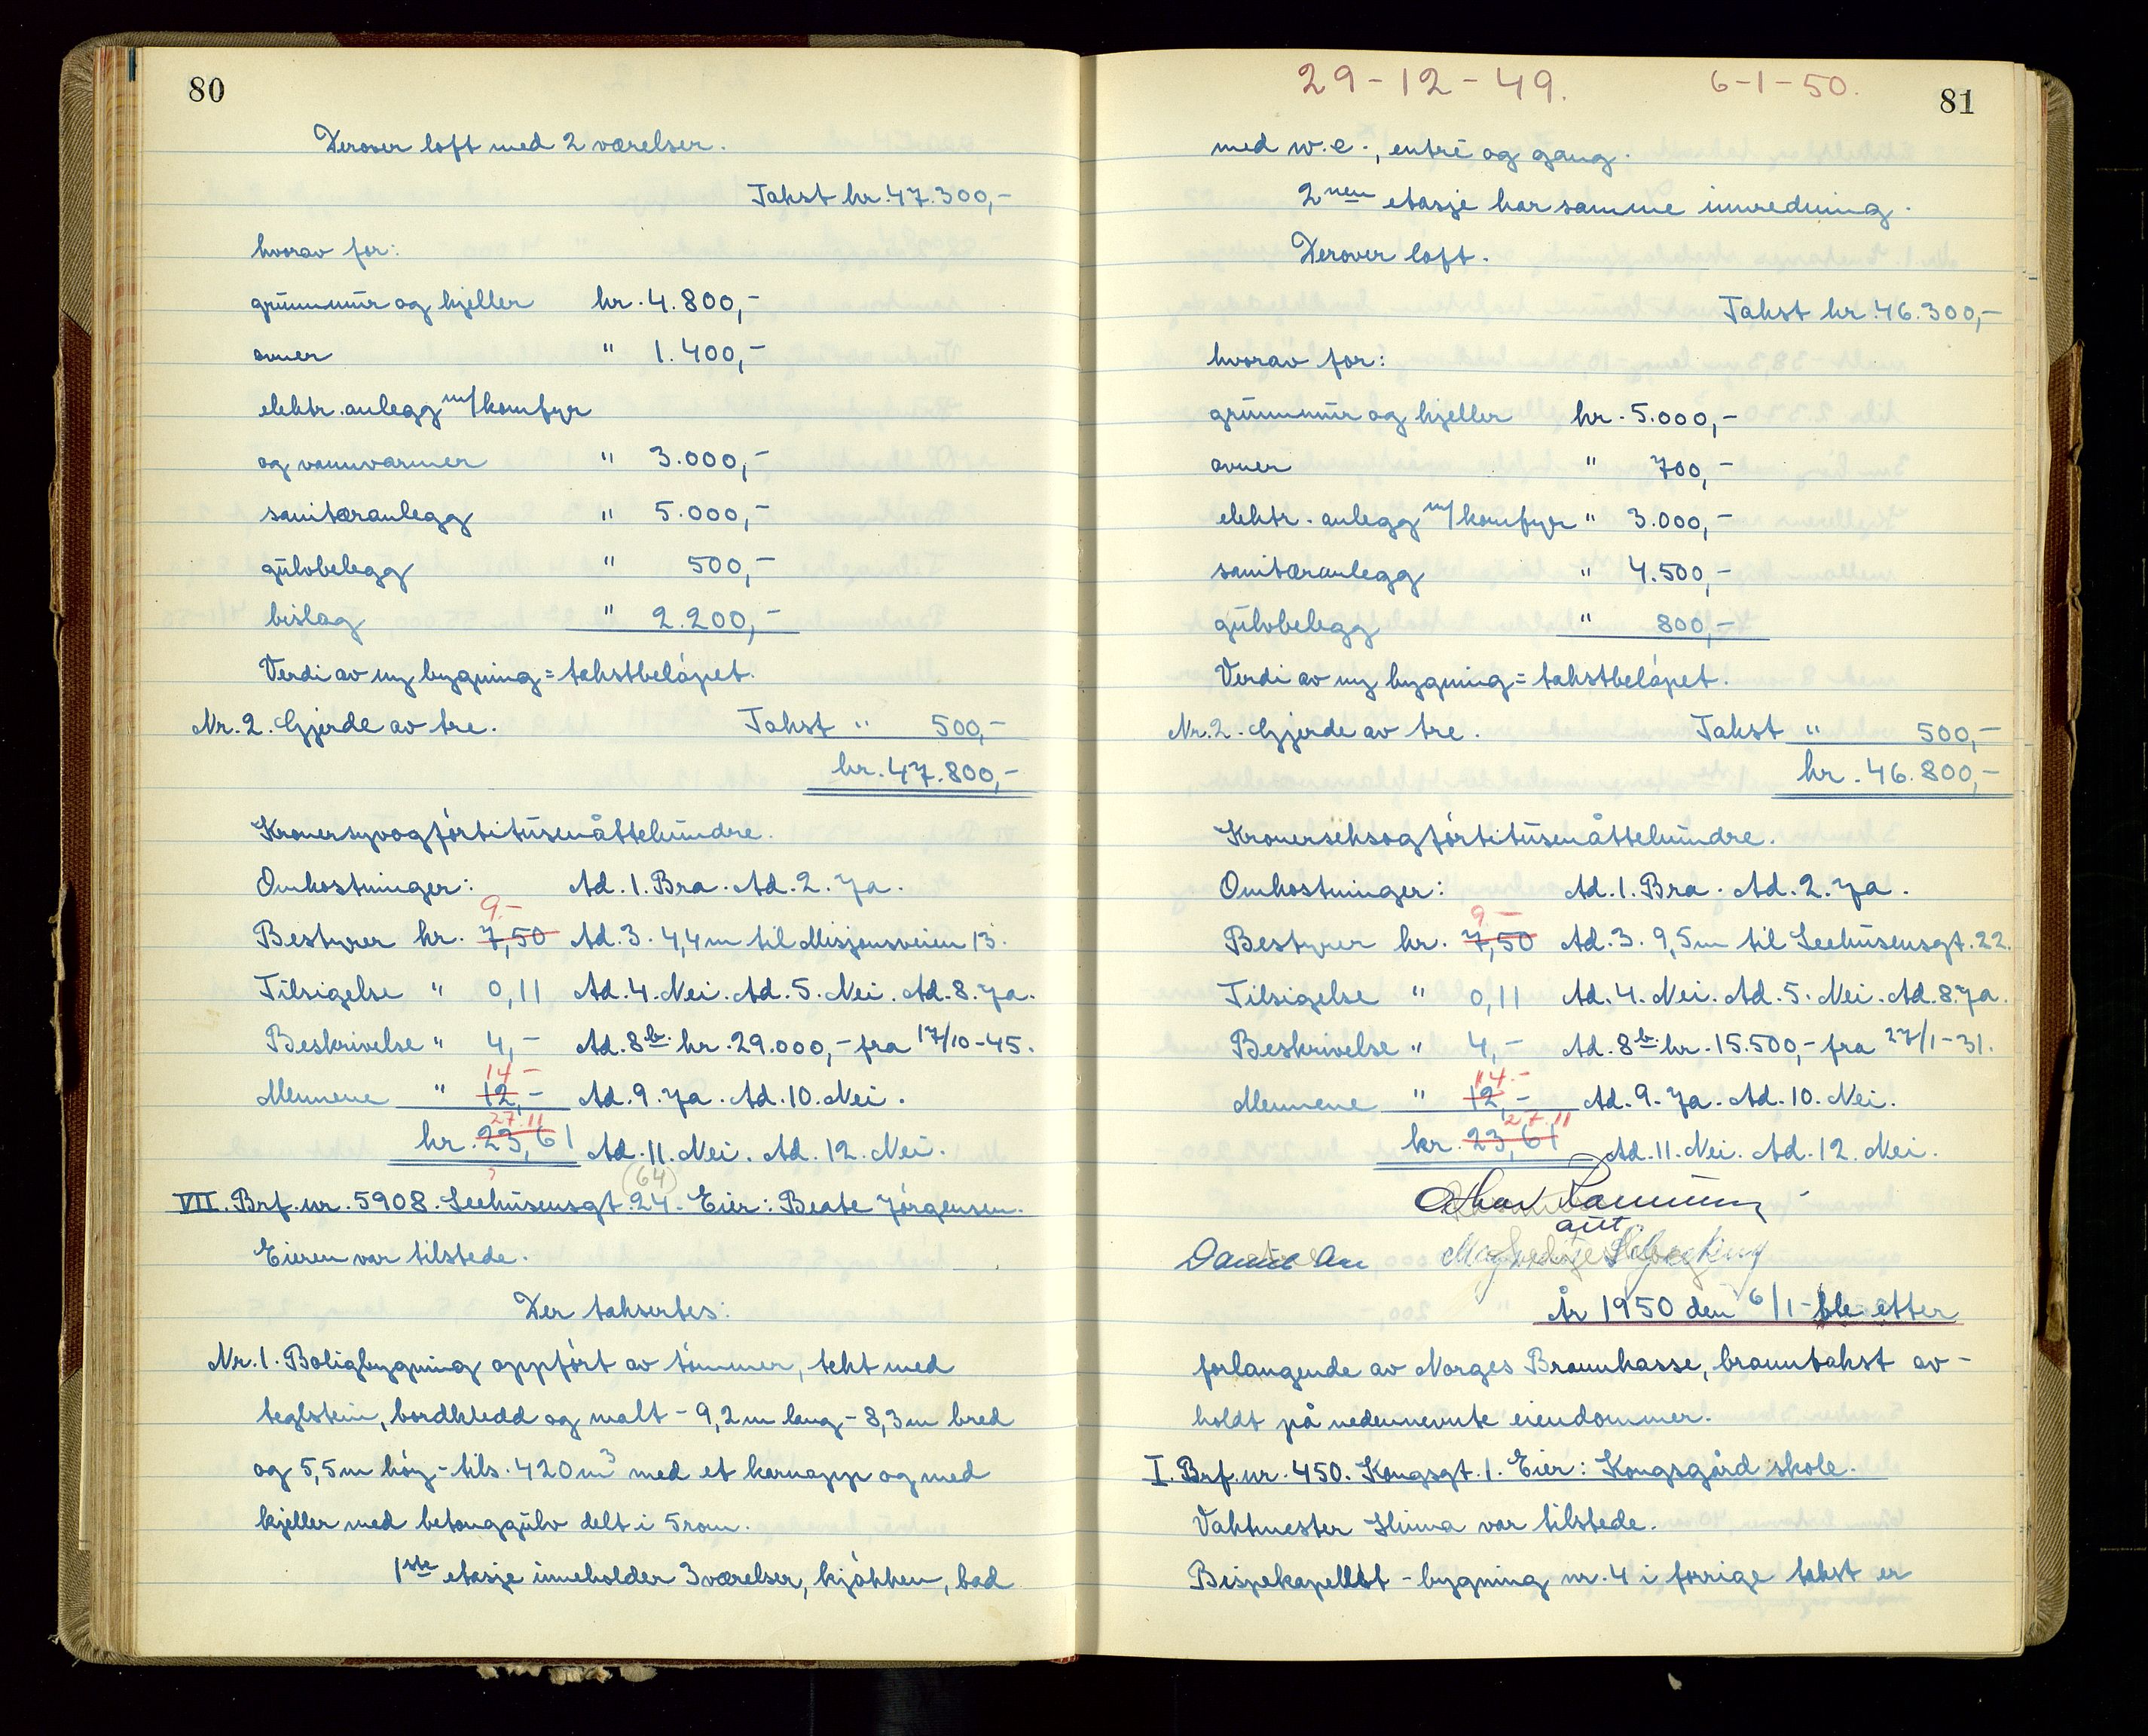 80
Derover loft med 2 værelser.
Takst kr. 47.300,-
hvorav for:
grunnmur og kjeller kr. 4.800,-
ovner " 1.400,-
elektr. anlegg m/komfyr
og vannvarmer " 3.000,-
sanitæranlegg " 5.000,-
gulvbelegg " 500,-
bislag " 2.200,-
Verdi av ny bygning = takstbeløpet.
Nr. 2. Gjerde av tre. Takst " 500,-
kr. 47.800,-
Kronersyvogførtitusenåttehundre.
Omkostninger: Ad. 1. Bra. Ad. 2. Ja.
9.-
Bestyrer kr. 7,50 Ad. 3. 4,4 m til Misjonsveien 13.
Tilsigelse " 0,11 Ad. 4. Nei. Ad. 5. Nei. Ad. 8. Ja.
Beskrivelse " 4,- Ad. 8b. kr. 29.000,- fra 17/10-45.
14.-
Mennene " 12,- Ad. 9. Ja. Ad. 10. Nei.
27.11
kr. 23,61 Ad. 11. Nei. Ad. 12. Nei.
(64)
VII. Brf. nr. 5908. Seehusensgt. 24. Eier: Beate Jørgensen.
Eieren var tilstede.
Der taksertes:
Nr. 1. Boligbygning oppført av tømmer, tekt med
teglstein, bordkledd og malt - 9,2 m lang - 8,3 m bred
og 5,5 m høy - tils. 420 m3 med et karnapp og med
kjeller med betonggulv delt i 5 rom.
1ste etasje inneholder 3 værelser, kjøkken, bad
29-12-49. 6-1-50.
81
med w.c., entré og gang.
2nen etasje har samme innredning.
Derover loft.
Takst kr. 46.300,-
hvorav for:
grunnmur og kjeller kr. 5.000,-
ovner " 700,-
elektr. anlegg m/komfyr " 3.000,-
sanitæranlegg " 4.500,-
gulvbelegg " 800,-
Verdi av ny bygning = takstbeløpet.
Nr. 2. Gjerde av tre. Takst " 500,-
kr. 46.800,-
Kronerseksogførtitusenåttehundre.
Omkostninger: Ad. 1. Bra. Ad. 2. Ja.
9.-
Bestyrer kr. 7,50 Ad. 3. 9,5 m til Seehusensgt. 22.
Tilsigelse " 0,11 Ad. 4. Nei. Ad. 5. Nei. Ad. 8. Ja.
Beskrivelse " 4,- Ad. 8b. kr. 15.500,- fra 27/1-31.
14.-
Mennene " 12,- Ad. 9. Ja. Ad. 10. Nei.
27.11
kr. 23,61 Ad. 11. Nei. Ad. 12. Nei.
År 1950 den 6/1- ble etter
forlangende av Norges Brannkasse, branntakst av-
holdt på nedennevnte eiendommer.
I. Brf. nr. 450. Kongsgt. 1. Eier: Kongsgård skole.
Vaktmester var tilstede.
Bispekapellet - bygning nr. 4 i forrige takst er